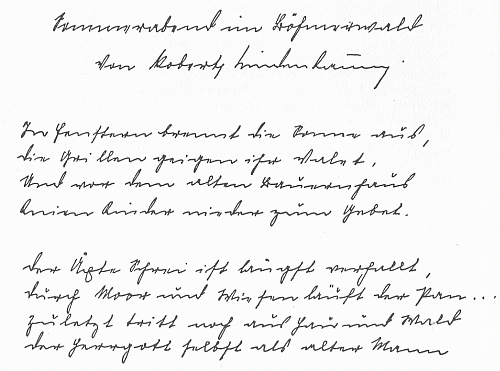 Sommerabend im Böhmerwald
von Robert Lindenbaum.
In Fenstern brennt die Sonne aus,
die Grillen geigen ihr Valet,
Und vor dem alten Bauernhaus
knien Kinder nieder zum Gebet.
der Äxte Schrei ist längst verhallt,
durch Moor und Wiesen läuft der Pan...
zuletzt tritt noch aus Hau und Wald
der Herrgott selbst als alter Mann